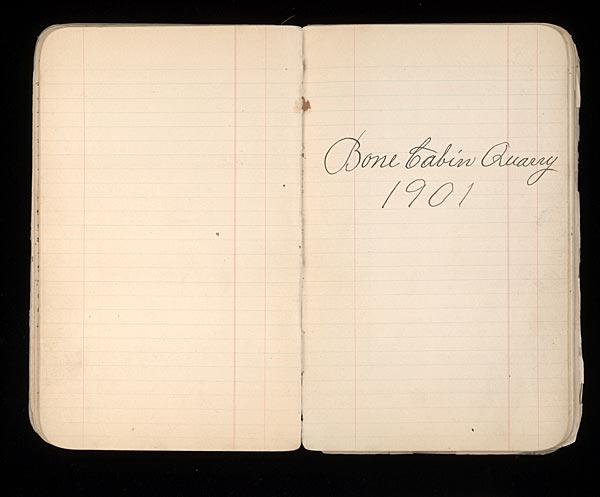 Bone Cabin Quarry
1901